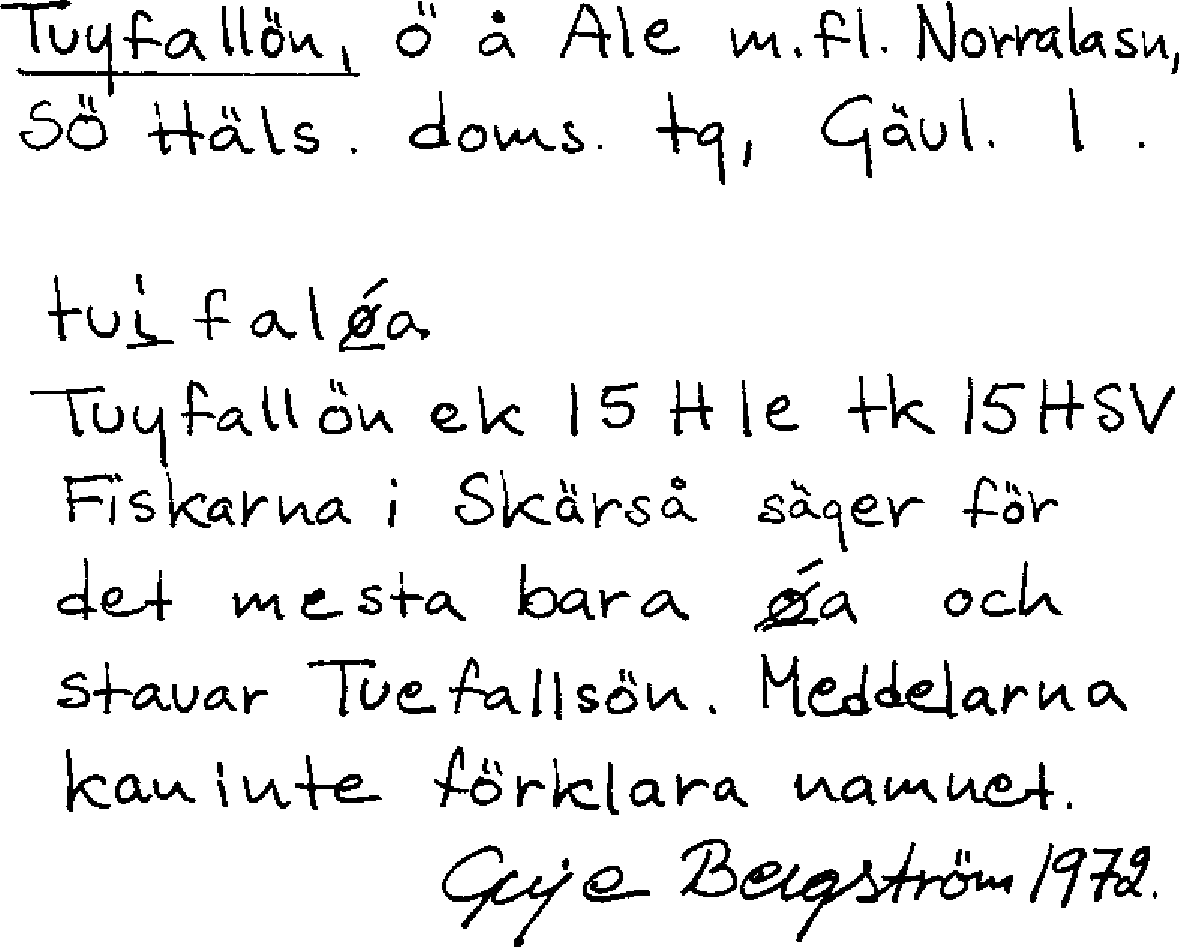 Tuyfallön, ö å Ale m.fl. Norralasn,
Sö Häls. doms. tq, Gävl. l.
tui̠ falǿ̠a
Tuyfallön ek 15 H le tk 15 H SV
Fiskarna i Skärså säger för
det mesta bara ǿ̠a och
stavar Tuefallsön. Meddelarna
kan inte förklara namnet.
Bergström 1972.